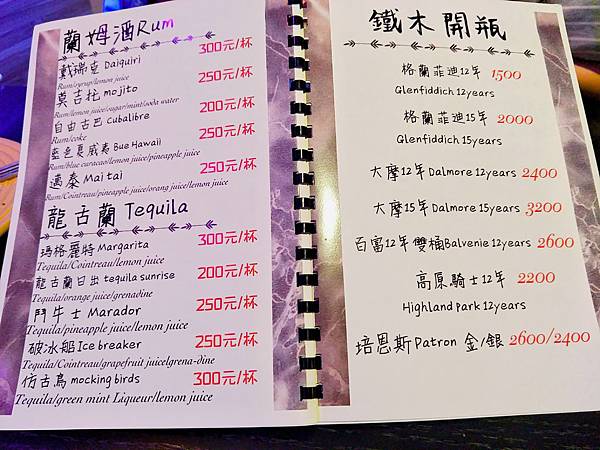 蘭姆酒Rum
戴瑞克 Daiquiri 300元/杯
Rum/syrup/lemon juice
莫吉托 mojito 250元/杯
Rum/lemon juice/sugar/mint/soda water
自由古巴 Cubalibre 200元/杯
Rum/coke
藍色夏威夷 Bue Hawaii 250元/杯
Rum/blue curacao/lemon juice/pineapple juice
邁泰 Mai tai 250元/杯
Rum/Cointreau/pineapple juice/orang juice/lemon juice
龍古蘭 Tequila
瑪格麗特 Margarita 300元/杯
Tequila/Cointreau/lemon juice
龍古蘭日出 tequila sunrise 200元/杯
Tequila/orange juice/grenadine
鬥牛士 Marador 250元/杯
Tequila/pineapple juice/lemon juice
破冰船 Ice breaker 250元/杯
Tequila/Cointreau/grapefruit juice/grena-dine
仿古鳥 mocking birds 300元/杯
Tequila/green mint Liqueur/lemon juice
鐵木開瓶
格蘭菲迪12年 1500
Glenfiddich 12years
格蘭菲迪15年 2000
Glenfiddich 15years
大摩12年Dalmore 12years 2400
大摩15年Dalmore 15years 3200
百富12年雙桶Balvenie 12years 2600
高原騎士12年 2200
Highland park 12years
培恩斯Patron 金/銀 2600/2400